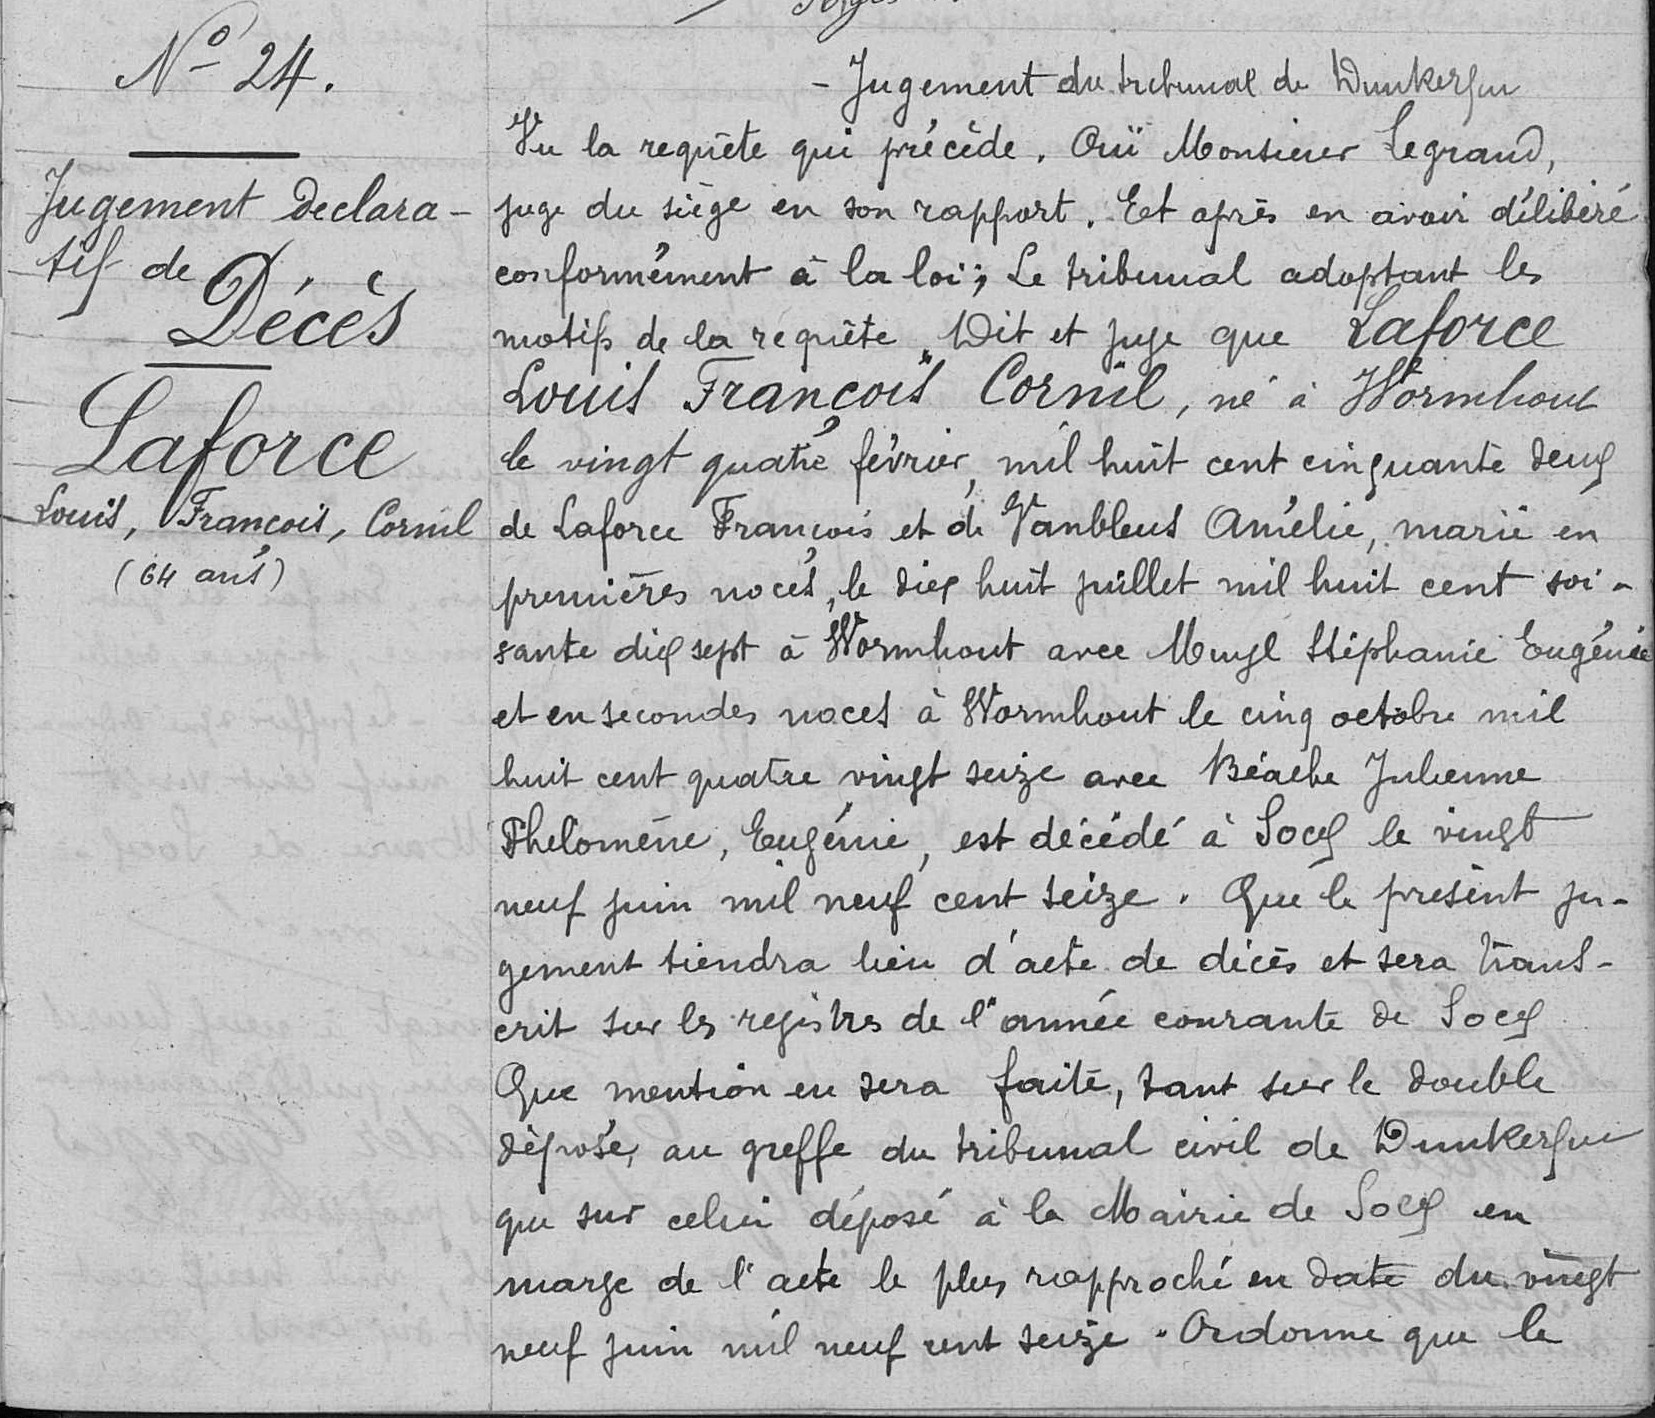 N° 24.
Jugement Declara-
tif de
Décès
Laforce
Louis, François, Cornil
(64 ans)
- Jugement du tribunal de Dunkerque
Vu la requête qui précède. Ouï Monsieur Legrand,
juge du siège en son rapport. Et après en avoir délibéré
conformément à la loi; Le tribunal adoptant les
motifs de la requête, Dit et juge que Laforce
Louis François Cornil, né à Wormhout
le vingt quatre février, mil huit cent cinquante deux
de Laforce François et de Vanbleus Amélie, marié en
premières noces, le dix huit juillet mil huit cent soi-
sante dix sept à Wormhout avec Muyl Stéphanie Eugénie
et en secondes noces à Wormhout le cinq octobre mil
huit cent quatre vingt seize avec Béaehe Julienne
Phelomène, Eugénie, est décédé à Socx le vingt
neuf juin mil neuf cent seize. Que le présent ju-
gement tiendra lieu d'acte de décès et sera trans-
crit sur les registres de l'année courante de Socx
Que mention en sera faite, tant sur le double
déposé, au greffe du tribunal civil de Dunkerque
que sur celui déposé à la Mairie de Socx en
marge de l'acte le plus rapproché en date du vingt
neuf juin mil neuf cent seize. Ordonne que le